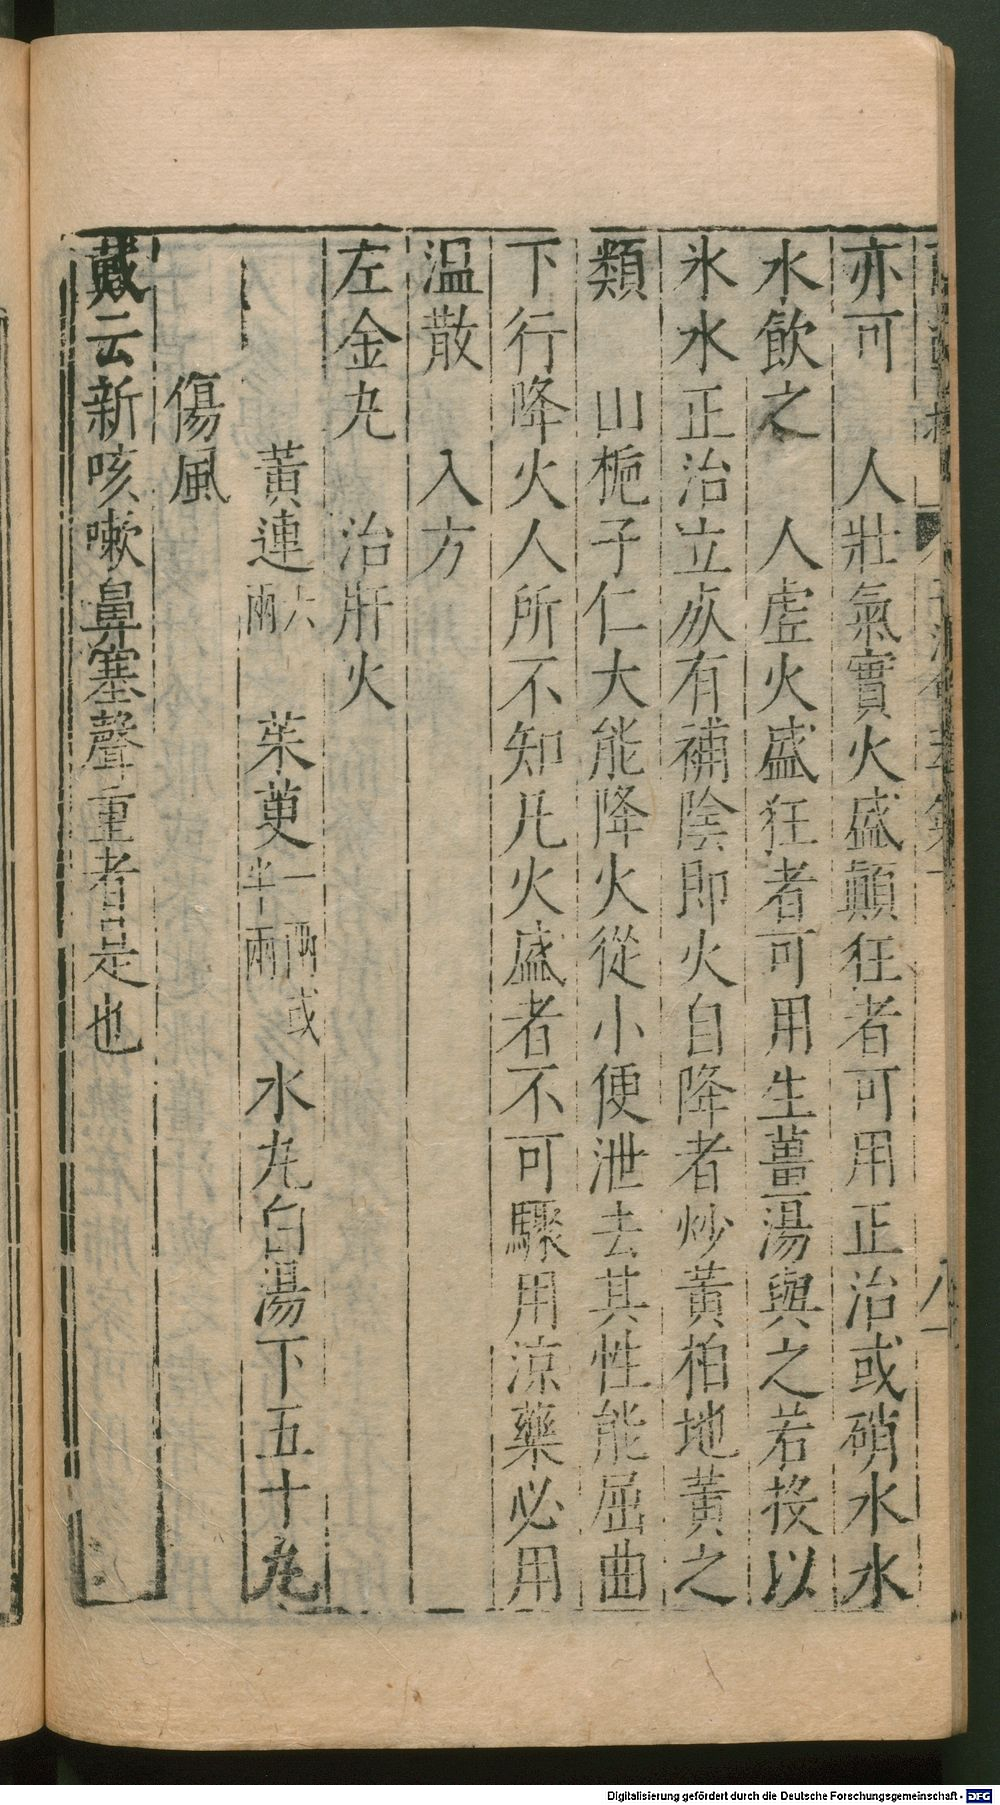 亦可　人壯氣實火盛顛狂者可用正治或硝水水
水飲之　人虛火盛狂者可用生薑湯與之若投以
氷水正治立死有補陰即火自降者炒黃柏地黃之
類　山梔子仁大能降火從小便泄去其性能屈曲
下行降火人所不知凡火盛者不可驟用涼藥必用
溫散　入方
左金丸　治肝火
黃連六兩　茱萸一兩或半兩　水丸白湯下五十丸
傷風
戴云新咳嗽鼻塞聲重者是也
Digitalisierung gefördert durch die Deutsche Forschungsgemeinschaft - DFG